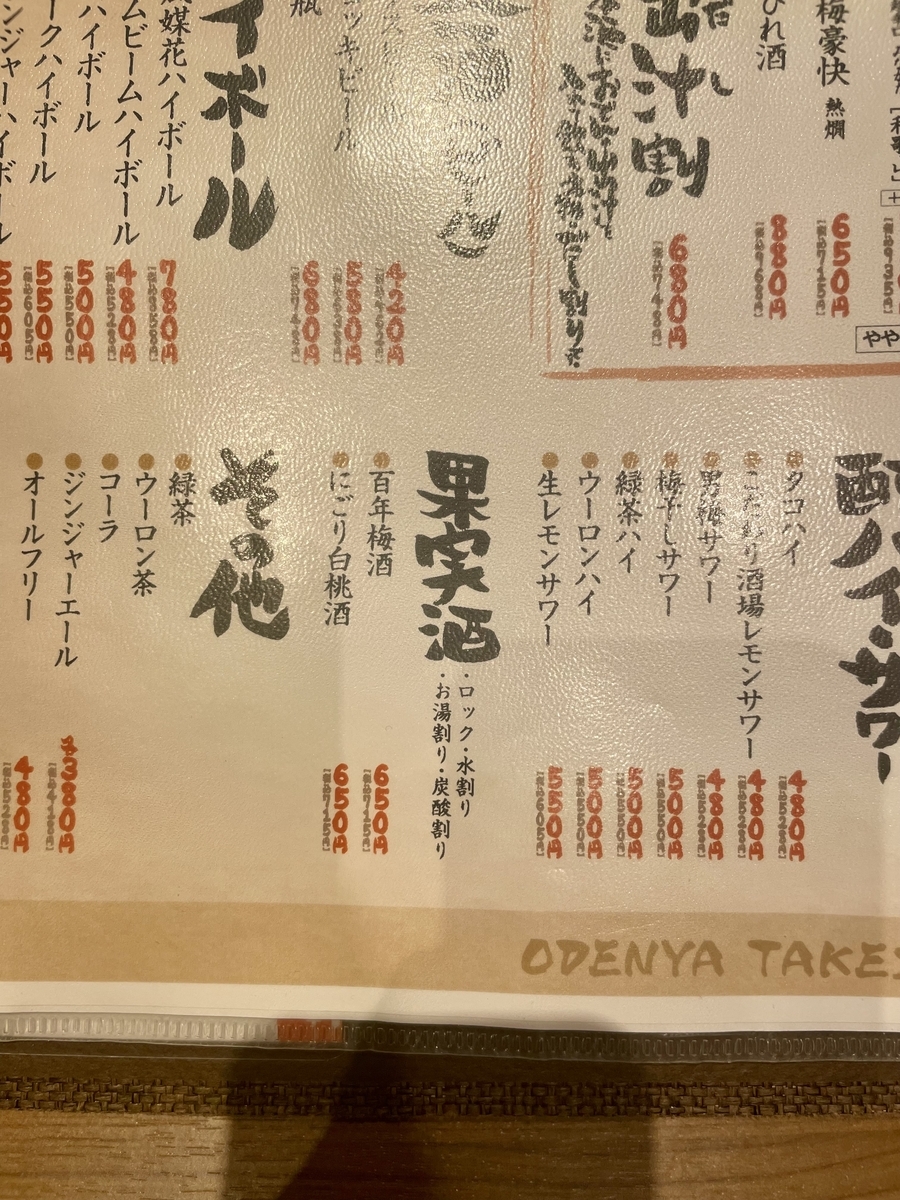 梅豪快 熱燗
650円
ひれ酒
880円
出汁割
680円
420円
ッキビール
580円
瓶
680円
イボール
媒花ハイボール
780円
ムビームハイボール
480円
ハイボール
500円
ークハイボール
550円
ンジャーハイボール
550円
酎ハイ・サワー
タコハイ
480円
こだわり酒場レモンサワー
480円
男梅サワー
480円
梅干しサワー
500円
緑茶ハイ
500円
ウーロンハイ
500円
生レモンサワー
550円
果実酒
・ロック・水割り
・お湯割り・炭酸割り
百年梅酒
650円
にごり白桃酒
650円
その他
緑茶
ウーロン茶
コーラ
ジンジャーエール
各380円
オールフリー
480円
ODENYA TAKE